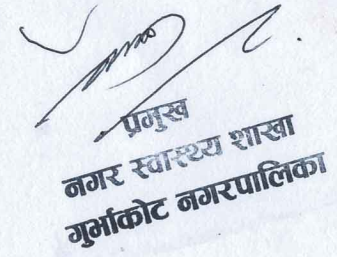 प्रमुख
नगर स्वास्थ्य शाखा
गुर्भाकोट नगरपालिका